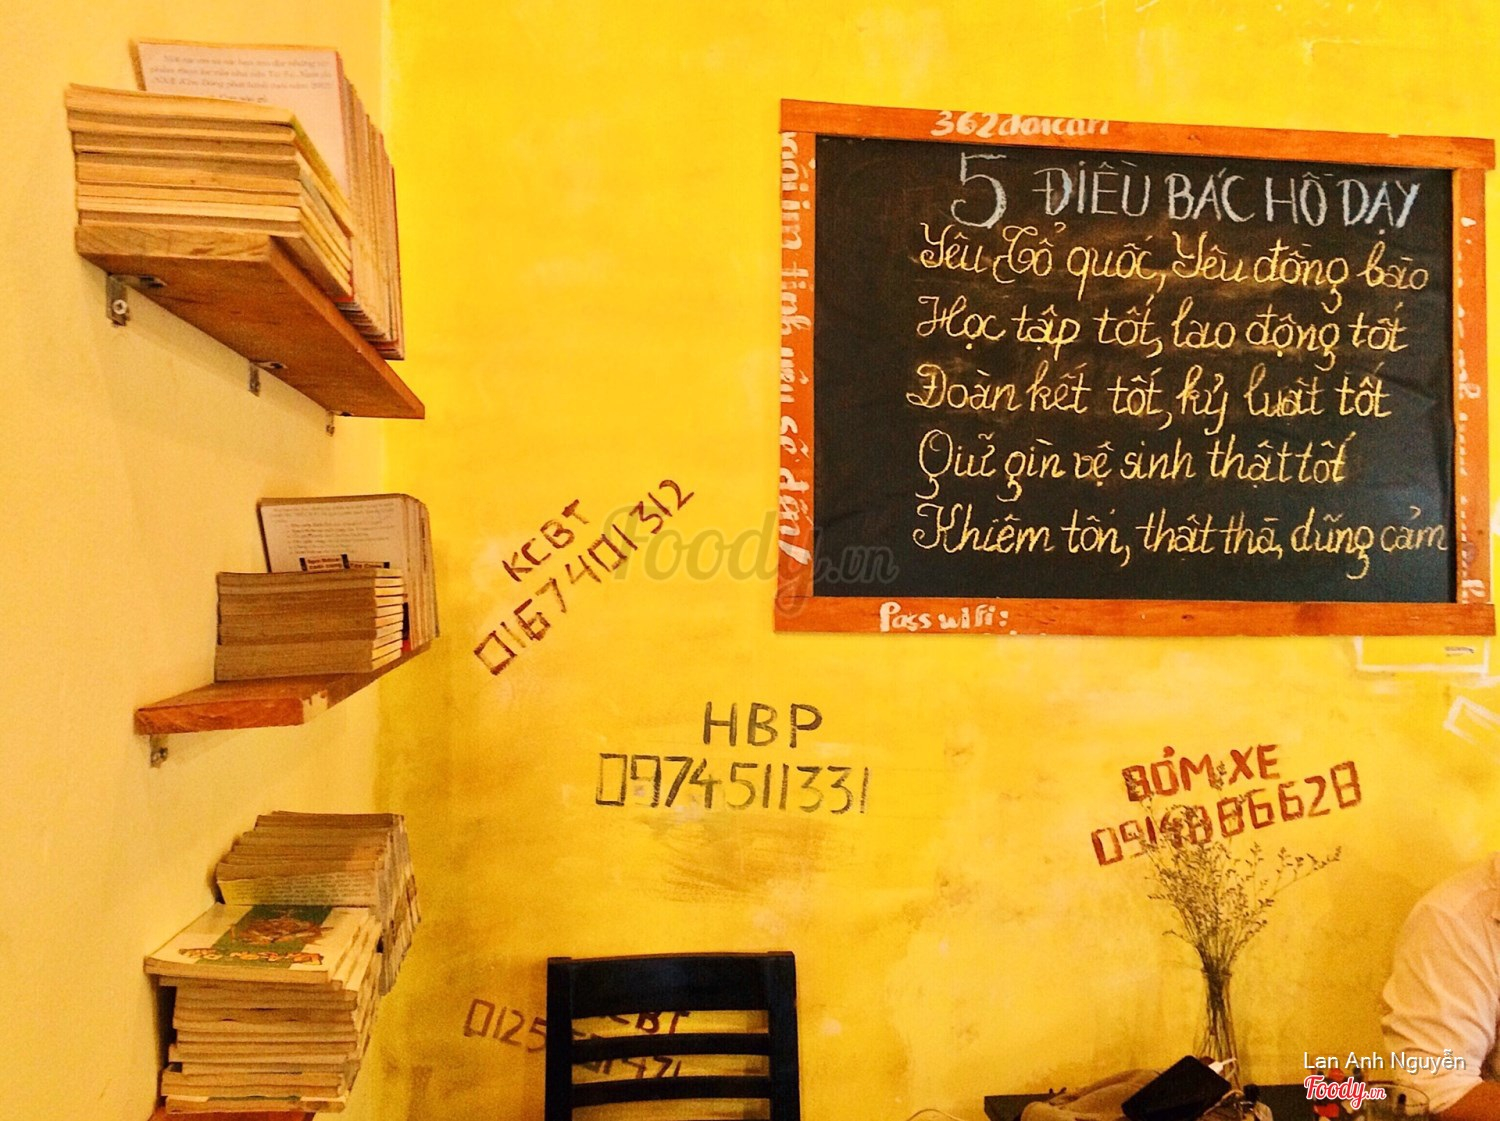 362daican
5 ĐIỀU BÁC HỒ DẠY
Yêu Tổ quốc, Yêu đồng bào
Học tập tốt, lao động tốt
Đoàn kết tốt, kỷ luật tốt
Giữ gìn vệ sinh thật tốt
Khiêm tốn, thật thà, dũng cảm
Pass wifi:
KCBT
01674401312
HBP
0974511331
BƠM XE
0914886628
0125
KCBT
Foody.vn
Lan Anh Nguyễn
Foody.vn